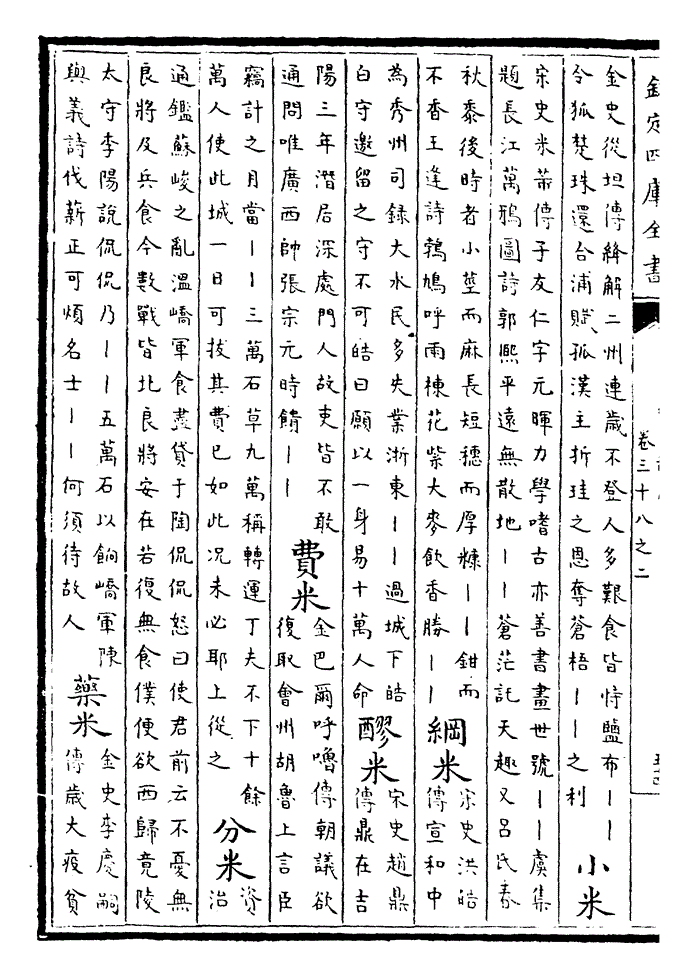 欽定四庫全書
卷三十八之二
金史從坦傳絳解二州連歲不登人多艱食皆恃鹽布丨丨
令狐楚珠還合浦賦孤漢主折珪之恩奪蒼梧丨丨之利
小米
宋史米芾傳子友仁字元暉力學嗜古亦善書畫世號丨丨虞集
題長江萬鴉圖詩郭熈平遠無散地丨丨蒼茫託天趣又吕氏春
秋黍後時者小莖而麻長短穗而厚糠丨丨鉗而
不香王逢詩鵓鳩呼雨楝花紫大麥飲香勝丨丨
綱米
宋史洪皓
傳宣和中
為秀州司録大水民多失業浙東丨丨過城下皓
白守邀留之守不可皓曰願以一身易十萬人命
醪米
宋史趙鼎
傳鼎在吉
陽三年潛居深處門人故吏皆不敢
通問唯廣西帥張宗元時餽丨丨
費米
金巴爾呼嚕傳朝議欲
復取會州胡魯上言臣
竊計之月當丨丨三萬石草九萬稱轉運丁夫不下十餘
萬人使此城一日可拔其費已如此况未必耶上從之
分米
資
治
通鑑蘇峻之亂溫嶠軍食盡貸于陶侃侃怒曰使君前云不憂無
良將及兵食今數戰皆北良將安在若復無食僕便欲西歸竟陵
太守李陽說侃侃乃丨丨五萬石以餉嶠軍陳
與義詩伐薪正可煩名士丨丨何須待故人
藥米
金史李慶嗣
傳歲大疫貧